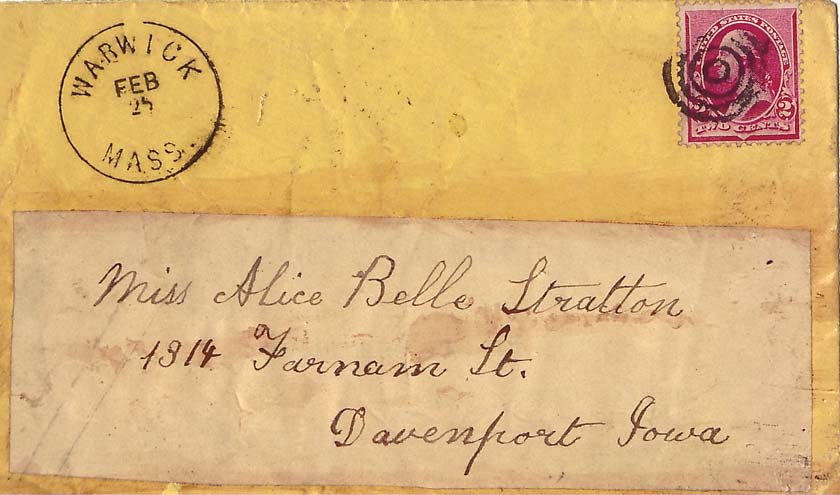 WARWICK
FEB
25
MASS.
UNITED STATES POSTAGE
TWO CENTS 2
Miss Alice Belle Stratton
1314 Farnam St.
Davenport Iowa